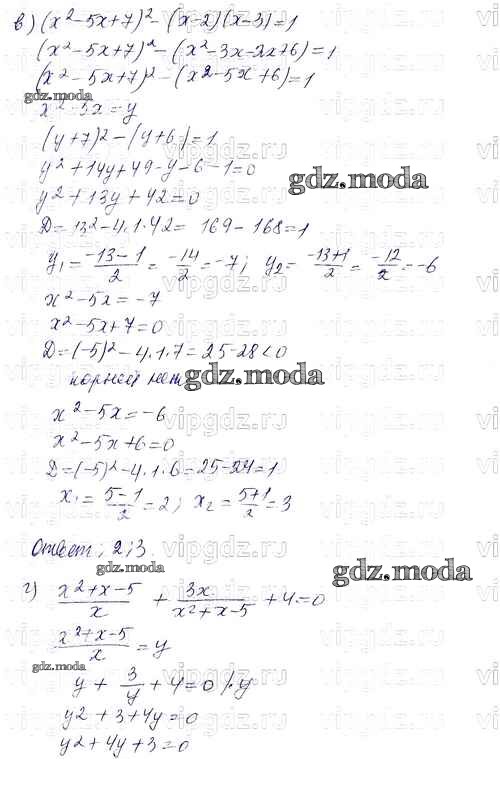 в) (x²-5x+7)² - (x-2)(x-3)=1
(x²-5x+7)² - (x²-3x-2x+6)=1
(x²-5x+7)² - (x²-5x+6)=1
gdz.moda
x²-5x=y
(y+7)² - (y+6)=1
y²+14y+49-y-6-1=0
gdz.moda
y²+13y+42=0
D=13²-4.1.42= 169-168=1
y₁= (-13-1)/2 = -14/2 = -7; y₂= (-13+1)/2 = -12/2 = -6
x²-5x=-7
x²-5x+7=0
D=(-5)²-4.1.7=25-28<0
корней нет
gdz.moda
x²-5x=-6
x²-5x+6=0
D=(-5)²-4.1.6=25-24=1
x₁= (5-1)/2 =2; x₂= (5+1)/2 =3
Ответ: 2;3
gdz.moda
gdz.moda
г) (x²+x-5)/x + 3x/(x²+x-5) +4=0
(x²+x-5)/x = y
gdz.moda
y + 3/y + 4=0 |·y
y²+3+4y=0
y²+4y+3=0
vipgdz.ru